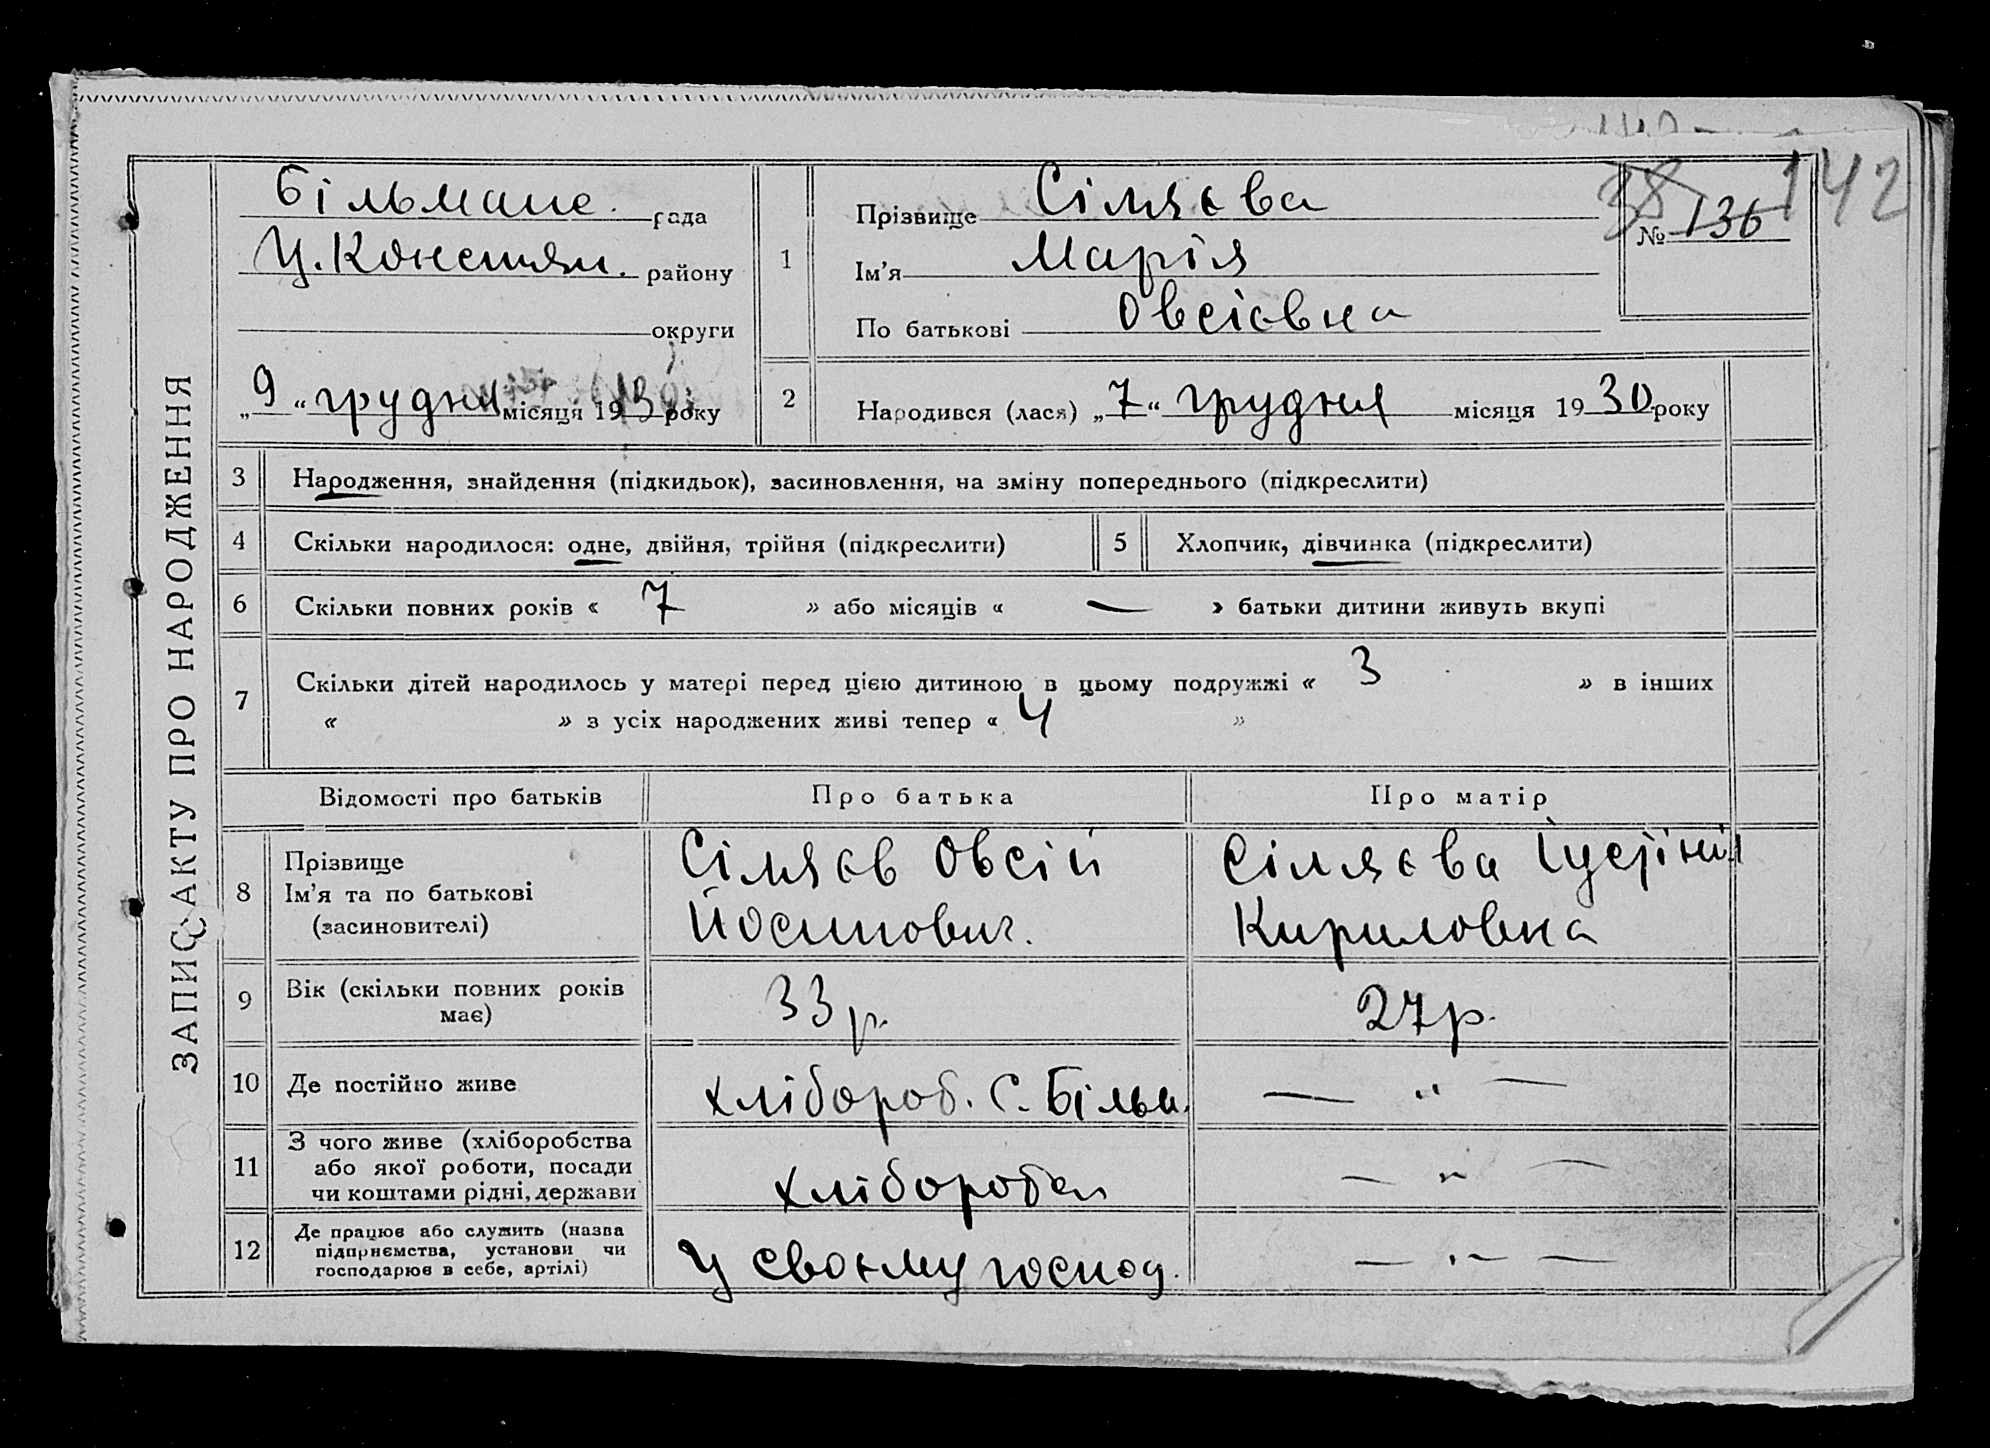 ЗАПИС АКТУ ПРО НАРОДЖЕННЯ
Більмане. рада
Ц. Констян. району
округи
„9“ грудня місяця 193 року
142
38
№ 136
1
Прізвище Сіляєва
Ім’я Марія
По батькові Овсієвна
2
Народився (лася) „7“ грудня місяця 1930 року
3 Народження, знайдення (підкидьок), засиновлення, на зміну попереднього (підкреслити)
4 Скільки народилося: одне, двійня, трійня (підкреслити) 5 Хлопчик, дівчинка (підкреслити)
6 Скільки повних років « 7 » або місяців « — » батьки дитини живуть вкупі
7 Скільки дітей народилось у матері перед цією дитиною в цьому подружжі « 3 » в інших
« » з усіх народжених живі тепер « 4 »
Відомості про батьків Про батька Про матір
8 Прізвище
Ім’я та по батькові
(засиновителі)
Сіляєв Овсій
Йосипович.
Сіляєва
Кириловна
9 Вік (скільки повних років
має)
33 р.
27 р.
10 Де постійно живе хлібороб. С. Більм. — " —
11 З чого живе (хліборобства
або якої роботи, посади
чи коштами рідні, держави
хлібороб
— " —
12 Де працює або служить (назва
підприємства, установи чи
господарює в себе, артілі)
У своєму господ.
— " —